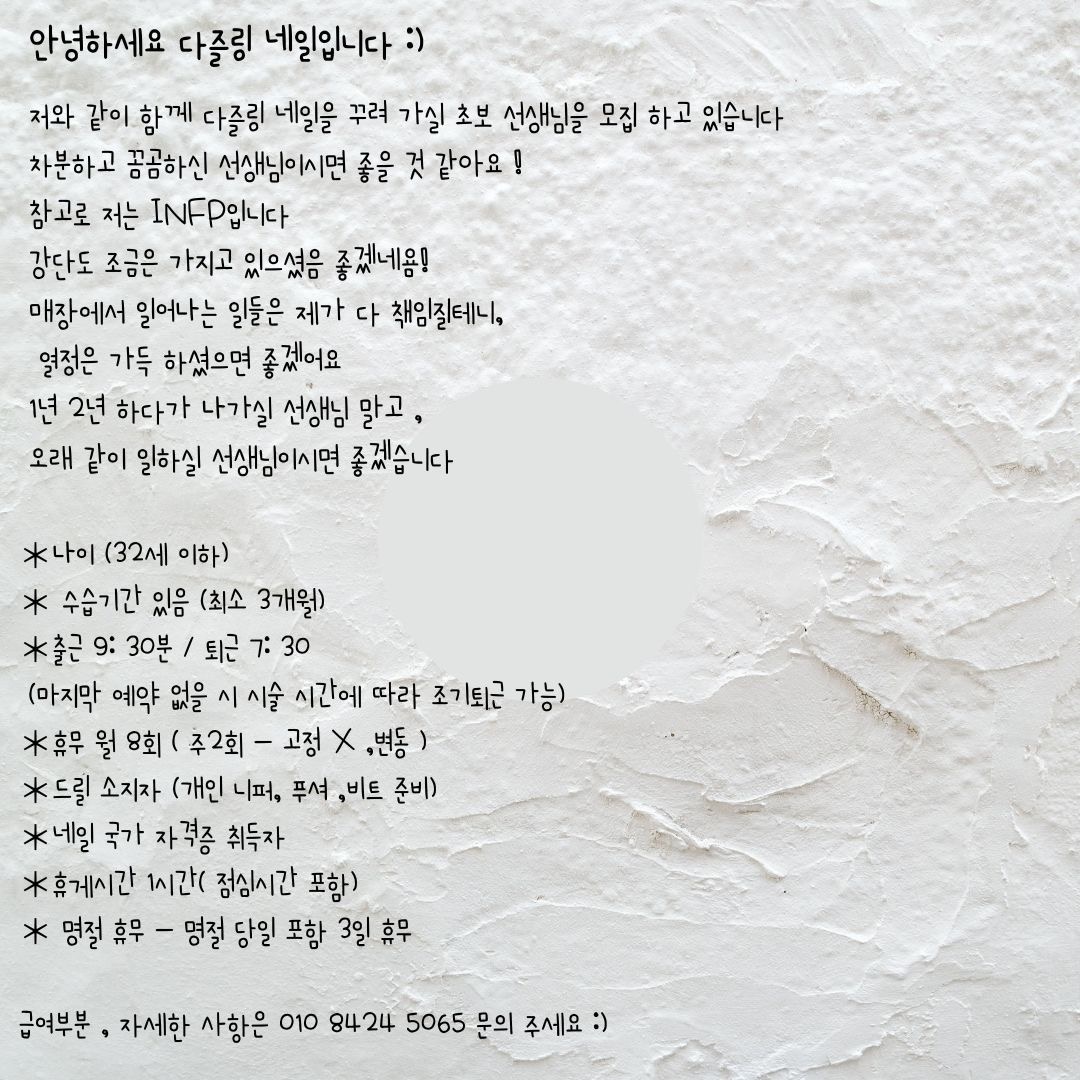 안녕하세요 다즐링 네일입니다 :)
저와 같이 함께 다즐링 네일을 꾸려 가실 초보 선생님을 모집 하고 있습니다
차분하고 꼼꼼하신 선생님이시면 좋을 것 같아요 !
참고로 저는 INFP입니다
강단도 조금은 가지고 있으셨음 좋겠네욤!
매장에서 일어나는 일들은 제가 다 책임질테니,
열정은 가득 하셨으면 좋겠어요
1년 2년 하다가 나가실 선생님 말고 ,
오래 같이 일하실 선생님이시면 좋겠습니다
*나이 (32세 이하)
* 수습기간 있음 (최소 3개월)
*출근 9: 30분 / 퇴근 7: 30
(마지막 예약 없을 시 시술 시간에 따라 조기퇴근 가능)
*휴무 월 8회 ( 주2회 - 고정 X ,변동 )
*드릴 소지자 (개인 니퍼, 푸셔 ,비트 준비)
*네일 국가 자격증 취득자
*휴게시간 1시간( 점심시간 포함)
* 명절 휴무 - 명절 당일 포함 3일 휴무
급여부분 , 자세한 사항은 010 8424 5065 문의 주세요 :)